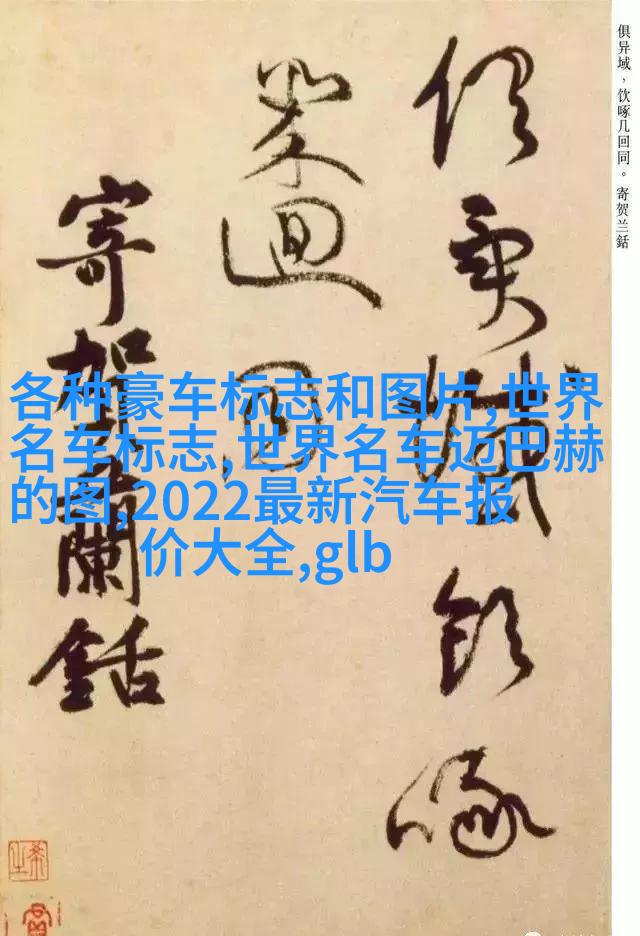 俱异域，饮啄几回同。寄贺兰銛
俱異域飲啄
幾迴同
寄賀蘭銛
各种豪车标志和图片,世界
名车标志,世界名车迈巴赫
的图,2022最新汽车报
价大全,glb